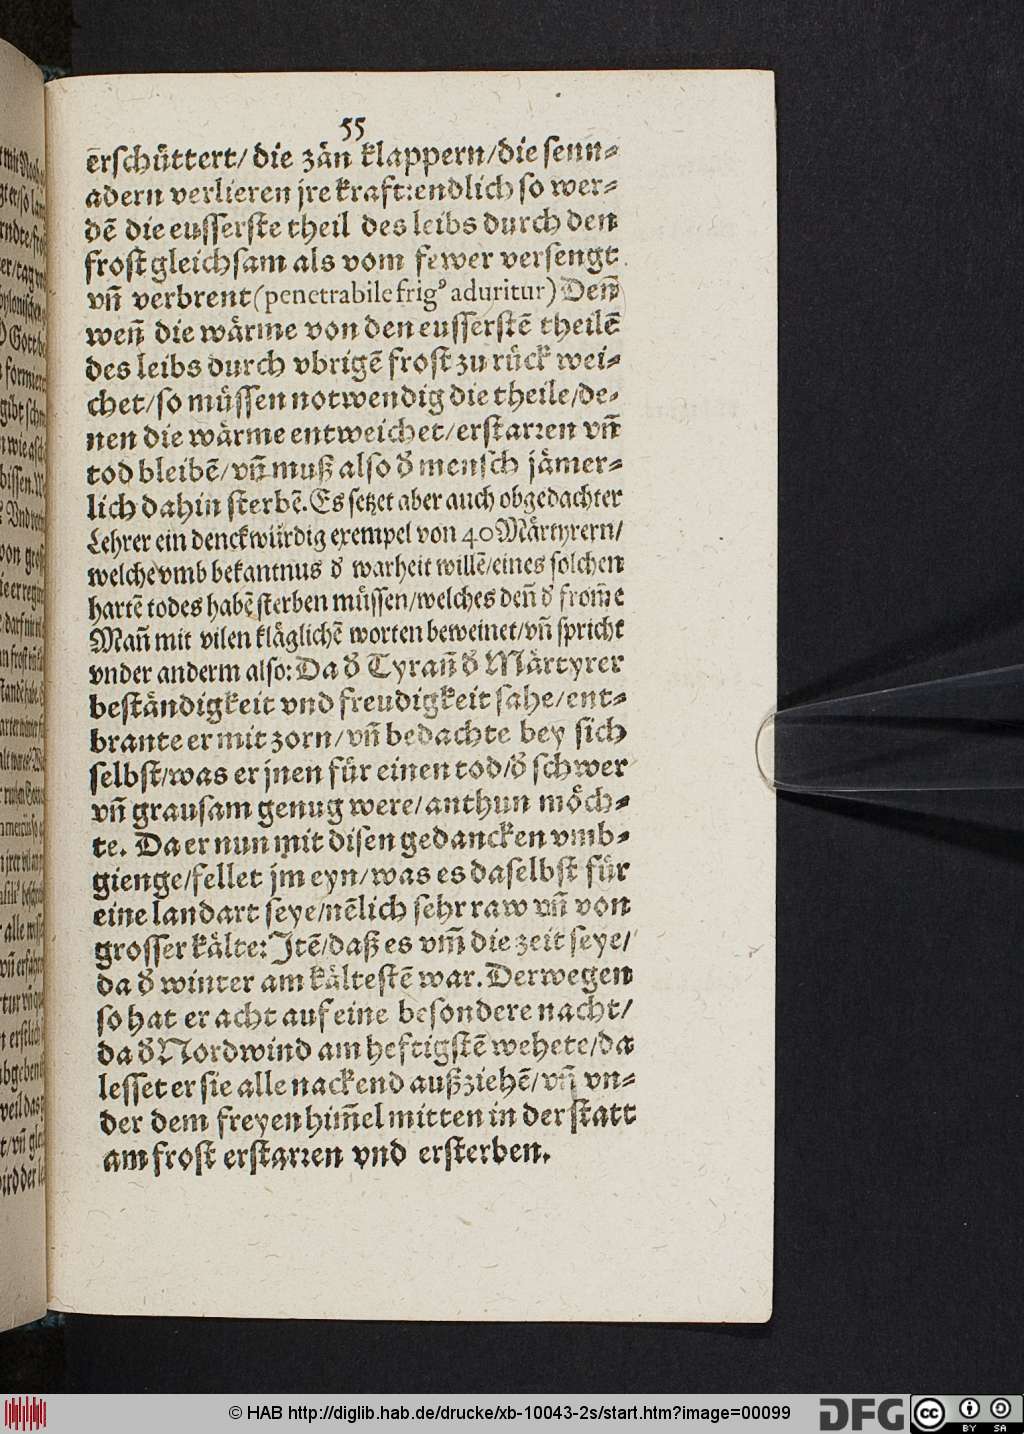 55
erschüttert/ die zän klappern/die senn⸗
adern verlieren jre kraft:endlich so wer⸗
dē die eusserste theil des leibs durch den
frost gleichsam als vom fewer versengt
vn̄ verbrent (penetrabile frigꝰ aduritur) Den̄
wen̄ die wärme von den eusserstē theilē
des leibs durch vbrigē frost zu rück wei⸗
chet/so müssen notwendig die theile/de⸗
nen die wärme entweichet/erstarren vn̄
tod bleibē/vn̄ muß also d̕ mensch jämer⸗
lich dahin sterbē. Es setzet aber auch obgedachter
Lehrer ein denckwürdig exempel von 40 Märtyrern/
welche vmb bekantnus d̕ warheit willē/eines solchen
hartē todes habē sterben müssen/welches den̄ d̕ from̄e
Man̄ mit vilen kläglichē worten beweinet/vn̄ spricht
vnder anderm also: Da d̕ Tyran̄ d̕ Märtyrer
beständigkeit vnd freudigkeit sahe/ent⸗
brante er mit zorn/vn̄ bedachte bey sich
selbst/was er jnen für einen tod/d̕ schwer
vn̄ grausam genug were/anthun möch⸗
te. Da er nun mit disen gedancken vmb⸗
gienge/fellet jm eyn/was es daselbst für
eine landart seye/nēlich sehr raw vn̄ von
grosser kälte: Itē/daß es vm̄ die zeit seye/
da d̕ winter am kältestē war. Derwegen
so hat er acht auf eine besondere nacht/
da d̕ Nordwind am heftigstē wehete/da
lesset er sie alle nackend außziehē/vn̄ vn⸗
der dem freyen him̄el mitten in der statt
am frost erstarren vnd ersterben.
© HAB http://diglib.hab.de/drucke/xb-10043-2s/start.htm?image=00099
DFG
cc
BY SA